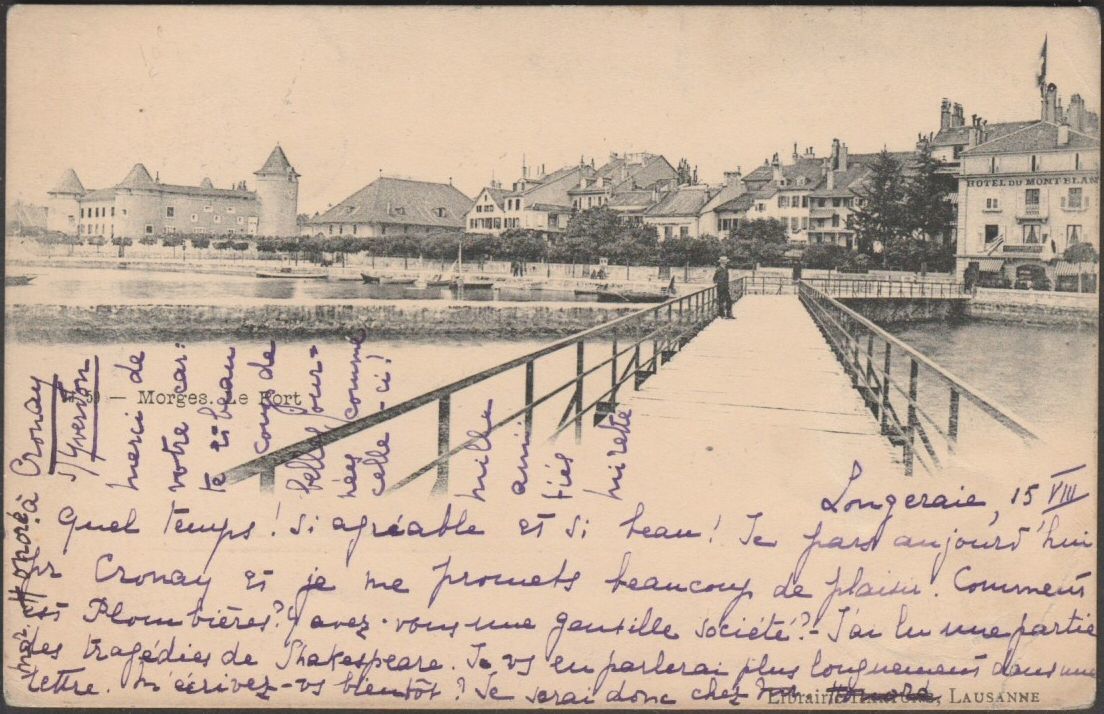 HÔTEL DU MONT BLAN
59 — Morges. Le Port
Longeraie, 15 VIII
Quel temps! si agréable et si beau! Je pars aujourd'hui
pr Cronay et je me promets beaucoup de plaisir. Comment
est Plombières? Y avez-vous une gentille société? - J'ai lu une partie
des tragédies de Shakespeare. Je vs en parlerai plus longuement dans une
lettre. M'écrivez-vs bientôt? Je serai donc chez
Honoré à Cronay
s/Yverdon
merci de
votre car-
te et beau
coup de
belles jour-
nées comme
celle-ci!
mille
ami
tiés
Librairie LAUSANNE